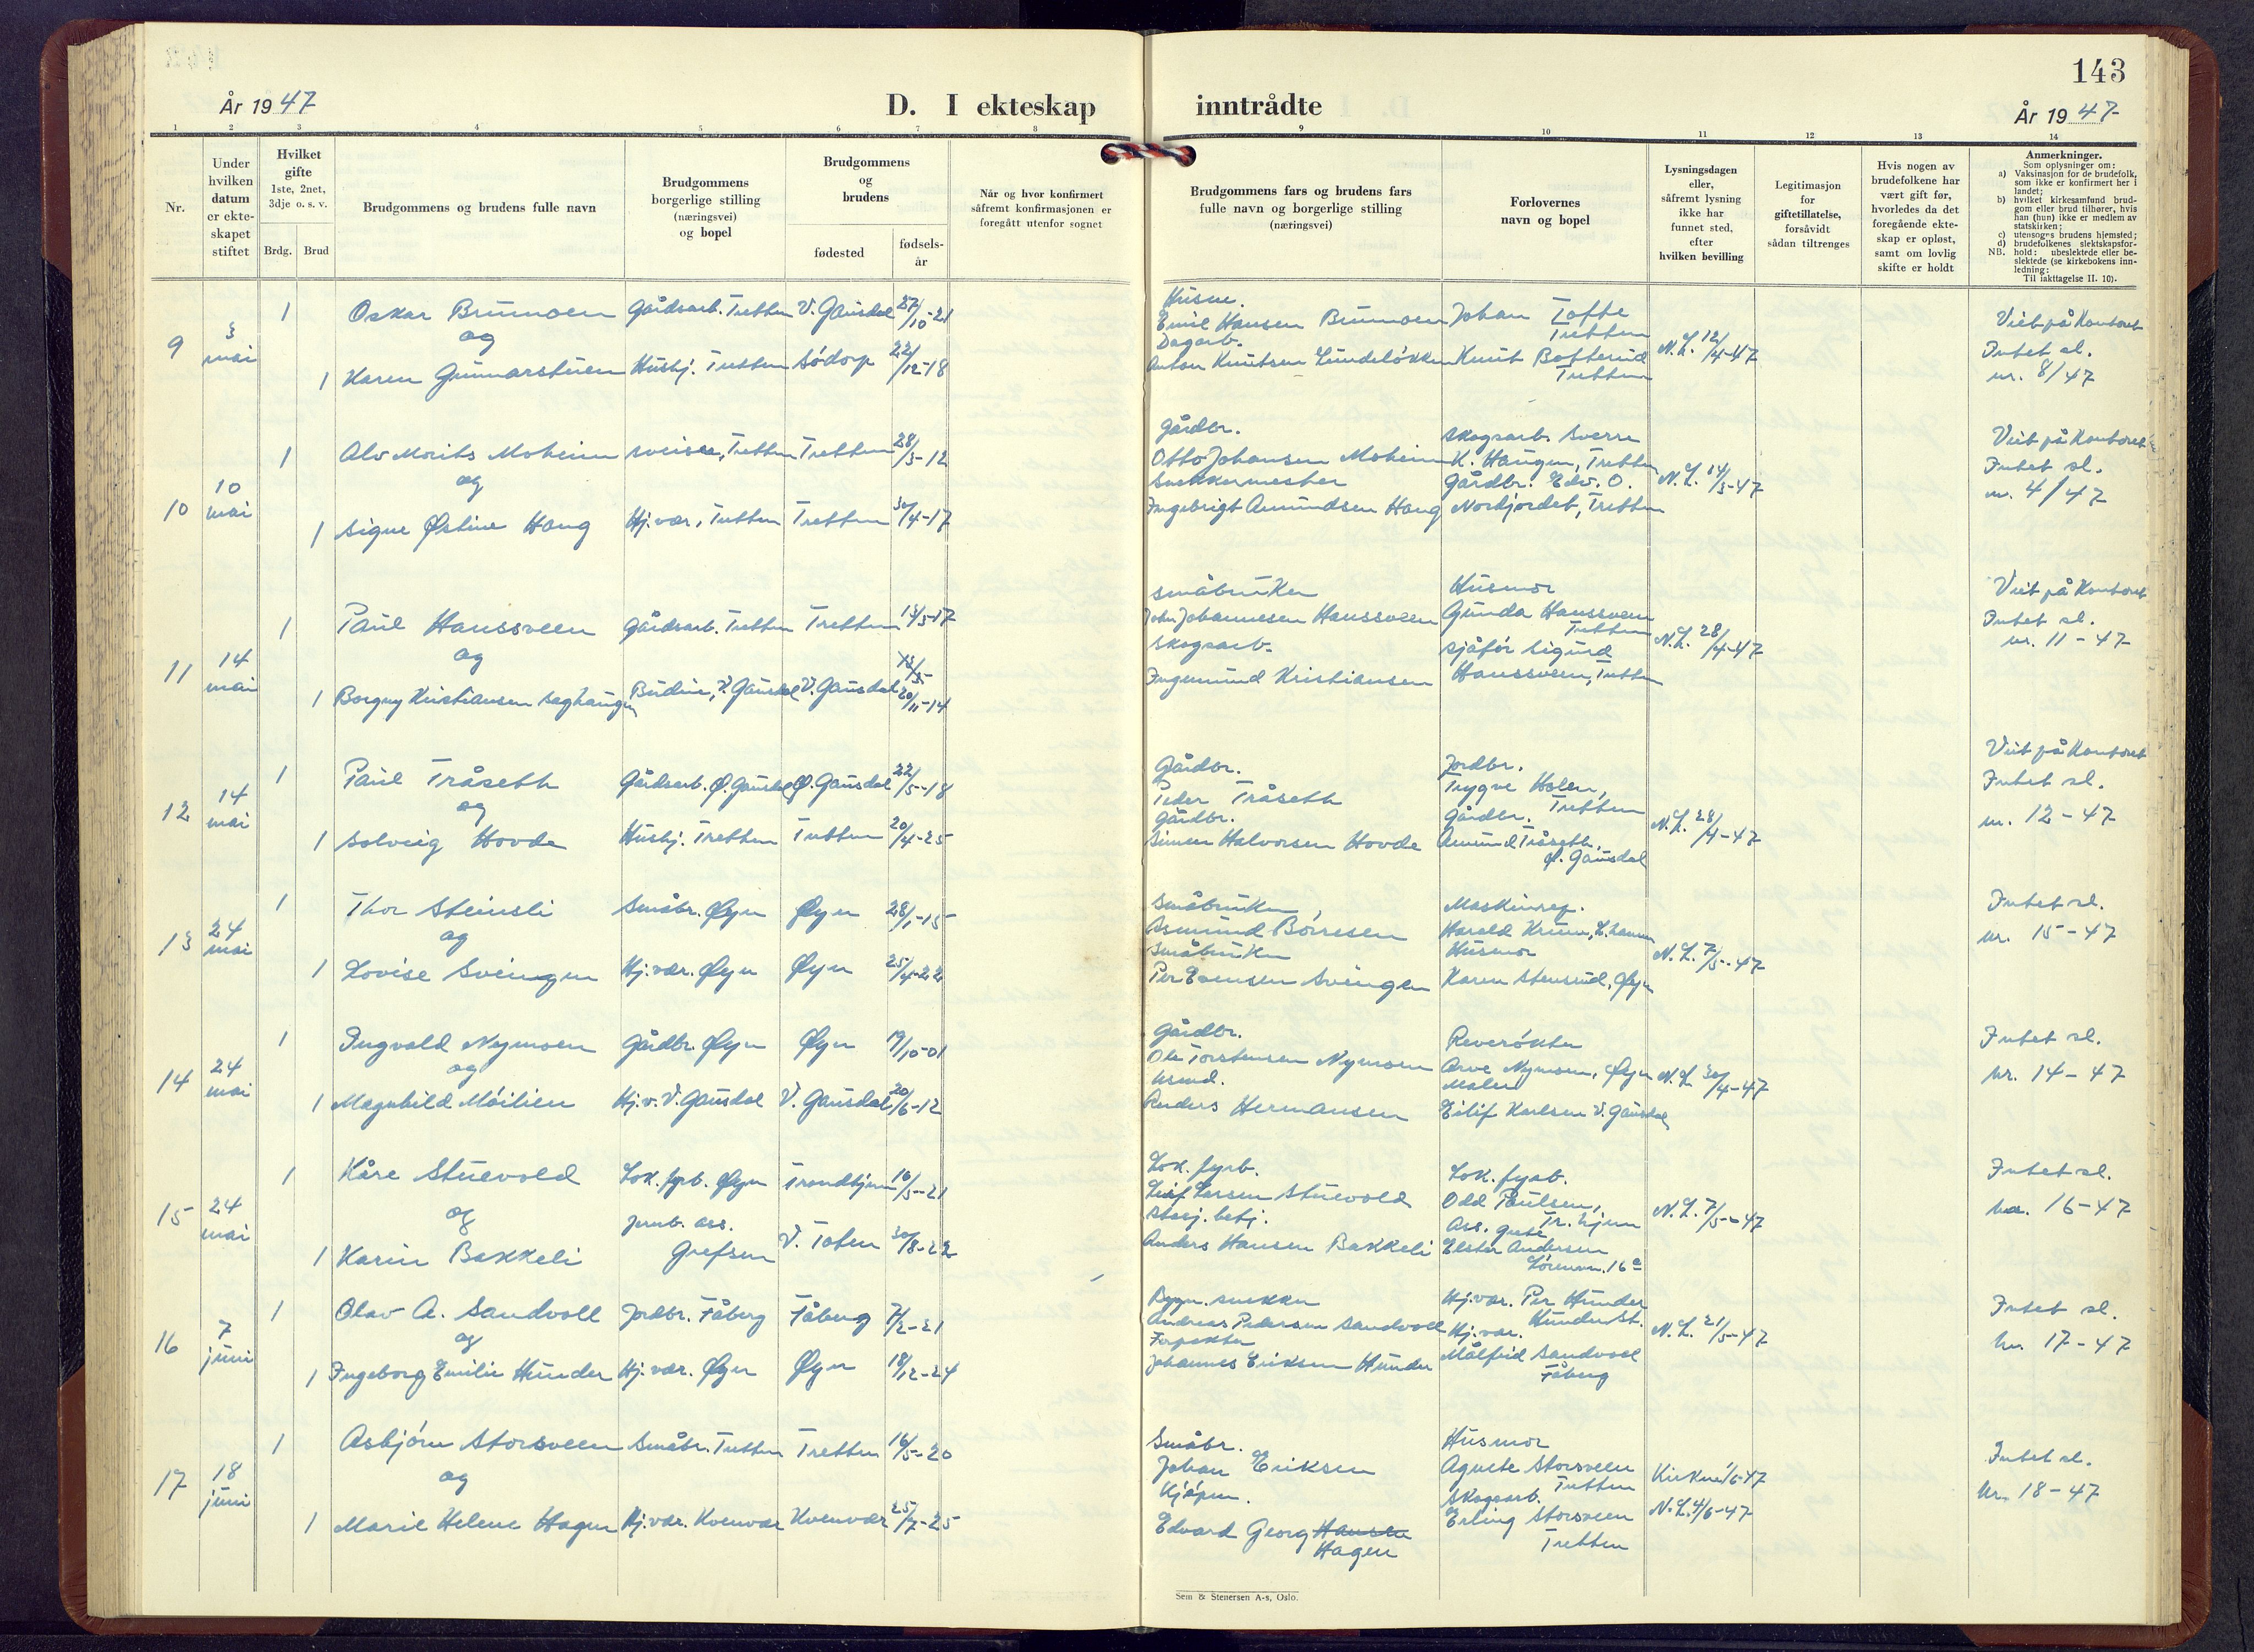 143
År 1947
D. I ekteskap inntrådte
År 1947
1 2 3 4 5 6 7 8 9 10 11 12 13 14
Nr.
Under hvilken datum er ekte-skapet stiftet
Hvilket gifte
1ste, 2net, 3dje o. s. v.
Brdg. Brud
Brudgommens og brudens fulle navn
Brudgommens borgerlige stilling (næringsvei) og bopel
Brudgommens og brudens
fødested
fødsels-år
Når og hvor konfirmert såfremt konfirmasjonen er foregått utenfor sognet
Brudgommens fars og brudens fars fulle navn og borgerlige stilling (næringsvei)
Forlovernes navn og bopel
Lysningsdagen eller, såfremt lysning ikke har funnet sted, efter hvilken bevilling
Legitimasjon for giftetillatelse, forsåvidt sådan tiltrenges
Hvis nogen av brudefolkene har vært gift før, hvorledes da det foregående ekte-skap er opløst, samt om lovlig skifte er holdt
Anmerkninger.
Som oplysninger om:
a) Vaksinasjon for de brudefolk, som ikke er konfirmert her i landet;
b) hvilket kirkesamfund brud-gom eller brud tilhører, hvis han (hun) ikke er medlem av statskirken;
c) utensogns brudens hjemsted;
d) brudefolkenes slektskapsfor-hold: ubeslektede eller be-slektede (se kirkebokens inn-ledning:
NB. Til iakttagelse II. 10).
9 3 mai
1 Oskar Brunmoen Gårdsarb. Tretten V. Gausdal 27/10-21
og
1 Karen Gunnarstuen Hushj. Tretten Sødorp 22/12-18
Husm.
Emil Hansen Brunmoen
Dagarb.
Anton Knutsen Lundeløkken
Johan Tofte
Tretten
Knut Botterud
Tretten
N.L. 12/4-47
Viet på Kontoret
Intet sl.
nr. 8/47
10 10 mai
1 Alv Morits Moheim sveiser, Tretten Tretten 28/3-12
og
1 Signe Østine Haug Hj.vær., Tretten Tretten 30/4-17
Gårdbr.
Otto Johansen Moheim
Snekkermester
Ingebrigt Amundsen Haug
Skogsarb. Sverre
K. Haugen, Tretten
Gårdbr. Edv. O.
Nordjordet, Tretten
N.L. 14/3-47
Viet på Kontoret
Intet sl.
nr. 4/47
11 14 mai
1 Paul Hanssveen Gårdsarb. Tretten Tretten 13/5-17
og
1 Borgny Kristiansen Saghaugen Budeie, V. Gausdal V. Gausdal 20/11-14
Småbruker
John Johannesen Hanssveen
Skogsarb.
Ingemund Kristiansen
Husmor
Gunda Hanssveen
Tretten
sjåfør Sigurd
Hanssveen, Tretten
N.L. 28/4-47
Viet på Kontoret
Intet sl.
nr. 11-47
12 14 mai
1 Paul Tråseth Gårdsarb. Ø. Gausdal Ø. Gausdal 22/5-18
og
1 Solveig Hovde Hushj. Tretten Tretten 20/4-25
Gårdbr.
Peder Tråseth
Gårdbr.
Simen Halvorsen Hovde
Jordbr.
Trygve Holen,
Tretten
Gårdbr.
Amund Tråseth,
Ø. Gausdal
N.L. 28/4-47
Viet på Kontoret
Intet sl.
nr. 12-47
13 24 mai
1 Thor Steinsli Småbr. Øyer Øyer 28/1-15
og
1 Lovise Svingen Hj.vær. Øyer Øyer 25/4-22
Småbruker,
Asmund Børresen
Småbruker
Per Evensen Svingen
Maskinrep.
Harald Krum, L.hamm
Husmor
Karen Stensrud, Øyer
N.L. 7/5-47
Intet sl.
nr. 15-47
14 24 mai
1 Ingvald Nymoen Gårdbr. Øyer Øyer 19/10-01
og
1 Magnhild Møilien Hj.v. V. Gausdal V. Gausdal 20/6-12
Gårdbr.
Ole Torstensen Nymoen
Anders Hermansen
Reverøkter
Arve Nymoen, Øyer
Maler
Eilif Karlsen V. Gausdal
N.L. 30/4-47
Intet sl.
nr. 14-47
15 24 mai
1 Kåre Stuevold Lok. fyrb. Øyer Trondhjem 10/5-21
og
1 Karin Bakkeli Jernb. ass. Grefsen V. Toten 30/8-22
Lok. fyrb.
Leif Larsen Stuevold
Stasj. betj.
Anders Hansen Bakkeli
Lok. fyrb.
Odd Paulsen,
Tr. hjem
Ass. Grete
Elster Andersen
Lørenvn. 16 a
N.L. 7/5-47
Intet sl.
nr. 16-47
16 7 juni
1 Olav A. Sandvoll Jordbr. Fåberg Fåberg 7/2-21
og
1 Ingeborg Emilie Hunder Hj.vær. Øyer Øyer 18/12-24
Bygn. snekker
Andreas Pedersen Sandvoll
Forpakter
Johannes Eriksen Hunder
Hj.vær. Per Hunder
Hunder St.
Hj.vær.
Målfrid Sandvoll
Fåberg
N.L. 21/5-47
Intet sl.
nr. 17-47
17 18 juni
1 Asbjørn Storsveen Småbr. Tretten Tretten 16/5-20
og
1 Marie Helene Hagen Hj.vær. Kvenvær Kvenvær 25/7-25
Småbr.
Johan Eriksen
Kjøpm.
Edvard Georg Hansen
Hagen
Husmor
Agnete Storsveen
Tretten
Skogsarb.
Erling Storsveen
Tretten
Kvenv. 1/6-47
N.L. 4/6-47
Intet sl.
Nr. 18-47
Sem & Stenersen A-s, Oslo.